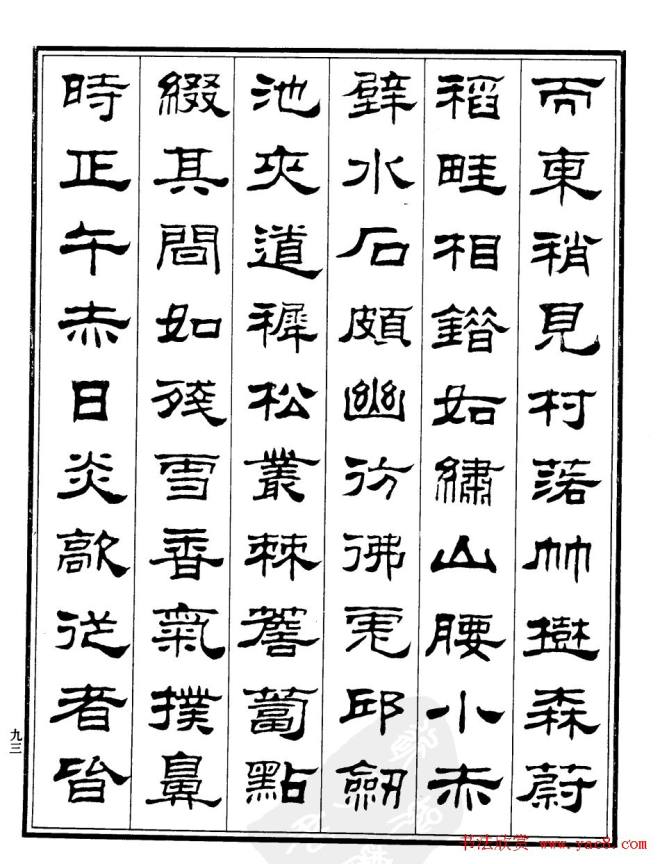 而東稍見村落竹樹森蔚
稻畦相錯如繡山腰小赤
壁水石頗幽彷彿虎邱劒
池夾道穉松叢棘薝蔔點
綴其間如殘雪香氣撲鼻
時正午赤日炎歊從者皆
九三
书法欣赏 www.yac8.com